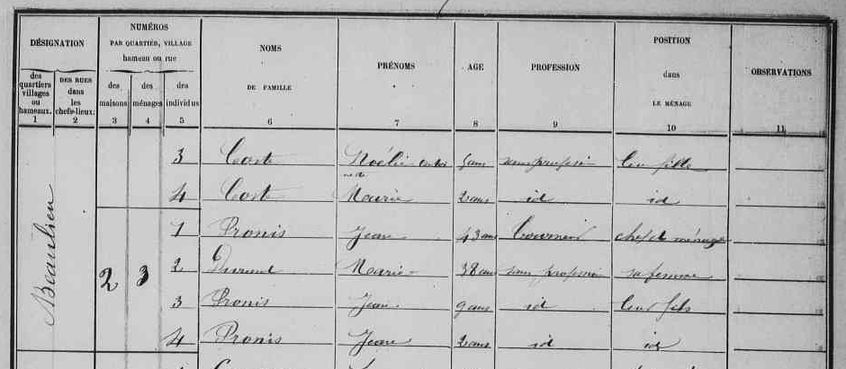 DÉSIGNATION
NUMÉROS
PAR QUARTIER, VILLAGE
hameau ou rue
des quartiers villages ou hameaux.
DES RUES dans les chefs-lieux.
des maisons
des ménages
des individus
NOMS
DE FAMILLE
PRÉNOMS
AGE
PROFESSION
POSITION
dans
LE MÉNAGE
OBSERVATIONS
1 2 3 4 5 6 7 8 9 10 11
Beaulieu
3 Coste Noélie 5 ans sans profession leur fille
4 Coste Marie 2 ans id id
2 3
1 Pronis Jean 43 ans chef de ménage
2 Durand Marie 38 ans sans profession sa femme
3 Pronis Jean 9 ans id leur fils
4 Pronis Jean 2 ans id id